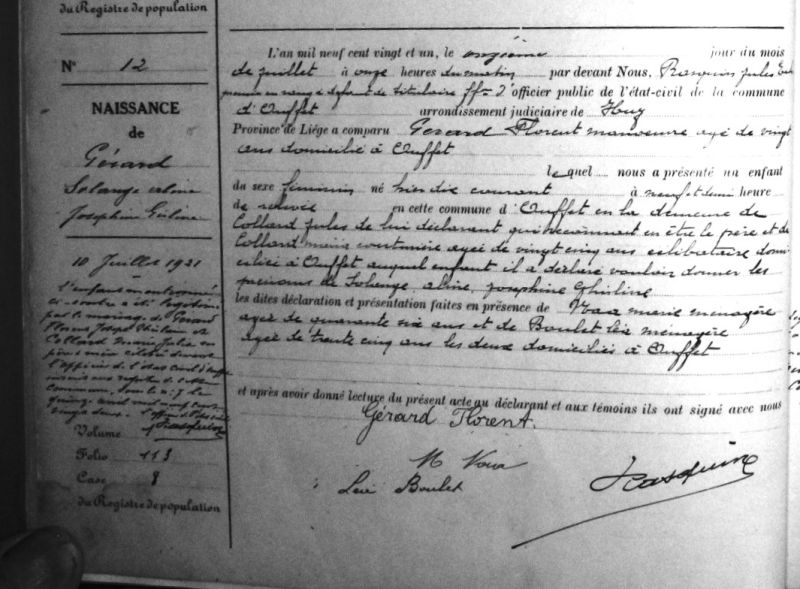 du Registre de population
N° 12
NAISSANCE
de
Gérard
Solange aline
Josephine Gisline
10 Juillet 1921
L'enfant
ci-contre a été légitimé
par le mariage de Gérard
Florent Joseph Ghislain et
Collard Marie Julia
père & mère célébré devant
l'officier de l'état civil d'Ouffet
inscrit aux registres de
commune, sous le n° 7 le
quinze avril mil neuf cent
vingt deux. L'officier
Volume
Folio 113
Case 8
du Registre de population
L'an mil neuf cent vingt et un, le onzième jour du mois
de juillet à onze heures du matin par devant Nous, Jules
de titulaire ff 2 officier public de l'état-civil de la commune
d'Ouffet arrondissement judiciaire de Huy
Province de Liége a comparu Gerard Florent manoeuvre agé de vingt
ans domicilié à Ouffet
lequel nous a présenté un enfant
du sexe feminin né hier dix courant à neuf et demi heure
de relevée en cette commune d'Ouffet en la demeure de
Collard Jules de lui déclarant qui reconnait en être le père et de
Collard maria couturière agée de vingt cinq ans célibataire domi
ciliée à Ouffet auquel enfant il a déclaré vouloir donner les
prénoms de Solange, aline, josephine Ghisline
les dites déclaration et présentation faites en présence de marie menagère
agée de quarante six ans et de Boulet ménagère
agée de trente cinq ans les deux domiciliés à Ouffet
et après avoir donné lecture du présent acte au déclarant et aux témoins ils ont signé avec nous
Gérard Florent.
M
Boulet